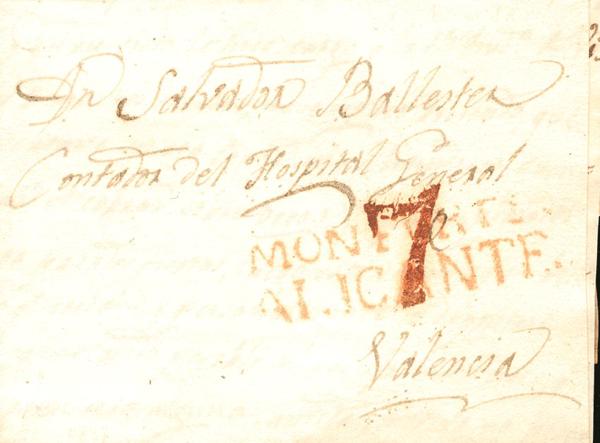 Dn Salvador Ballester
Contador del Hospital General
de
7
MONFORTE.
ALICANTE.
Valencia